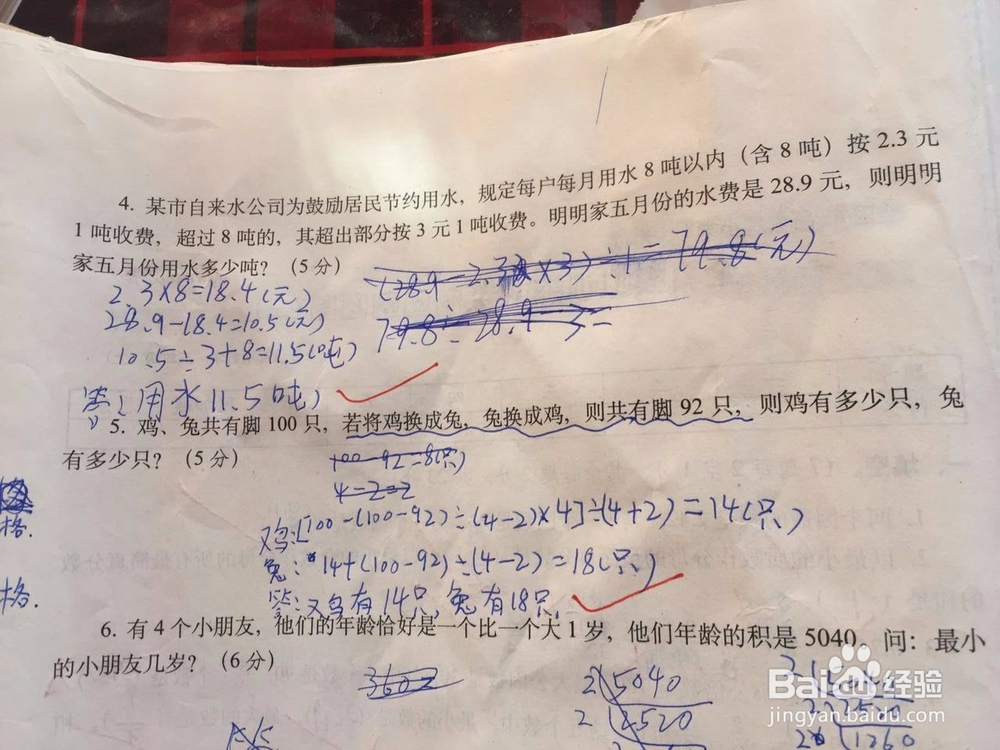 4. 某市自来水公司为鼓励居民节约用水，规定每户每月用水 8 吨以内（含 8 吨）按 2.3 元
1 吨收费，超过 8 吨的，其超出部分按 3 元 1 吨收费。明明家五月份的水费是 28.9 元，则明明
家五月份用水多少吨？（5 分）
2.3×8=18.4(元)
28.9-18.4=10.5(元)
10.5÷3+8=11.5(吨)
答：用水11.5吨
5. 鸡、兔共有脚 100 只，若将鸡换成兔，兔换成鸡，则共有脚 92 只，则鸡有多少只，兔
有多少只？（5 分）
100-92=8(只)
鸡：[100-(100-92)÷(4-2)×4]÷(4+2)=14(只)
兔：14+(100-92)÷(4-2)=18(只)
答：鸡有14只，兔有18只.
格.
格.
6. 有 4 个小朋友，他们的年龄恰好是一个比一个大 1 岁，他们年龄的积是 5040。问：最小
的小朋友几岁？（6 分）
2 5040
2 2520
1260
Baidu 经验
jingyan.baidu.com